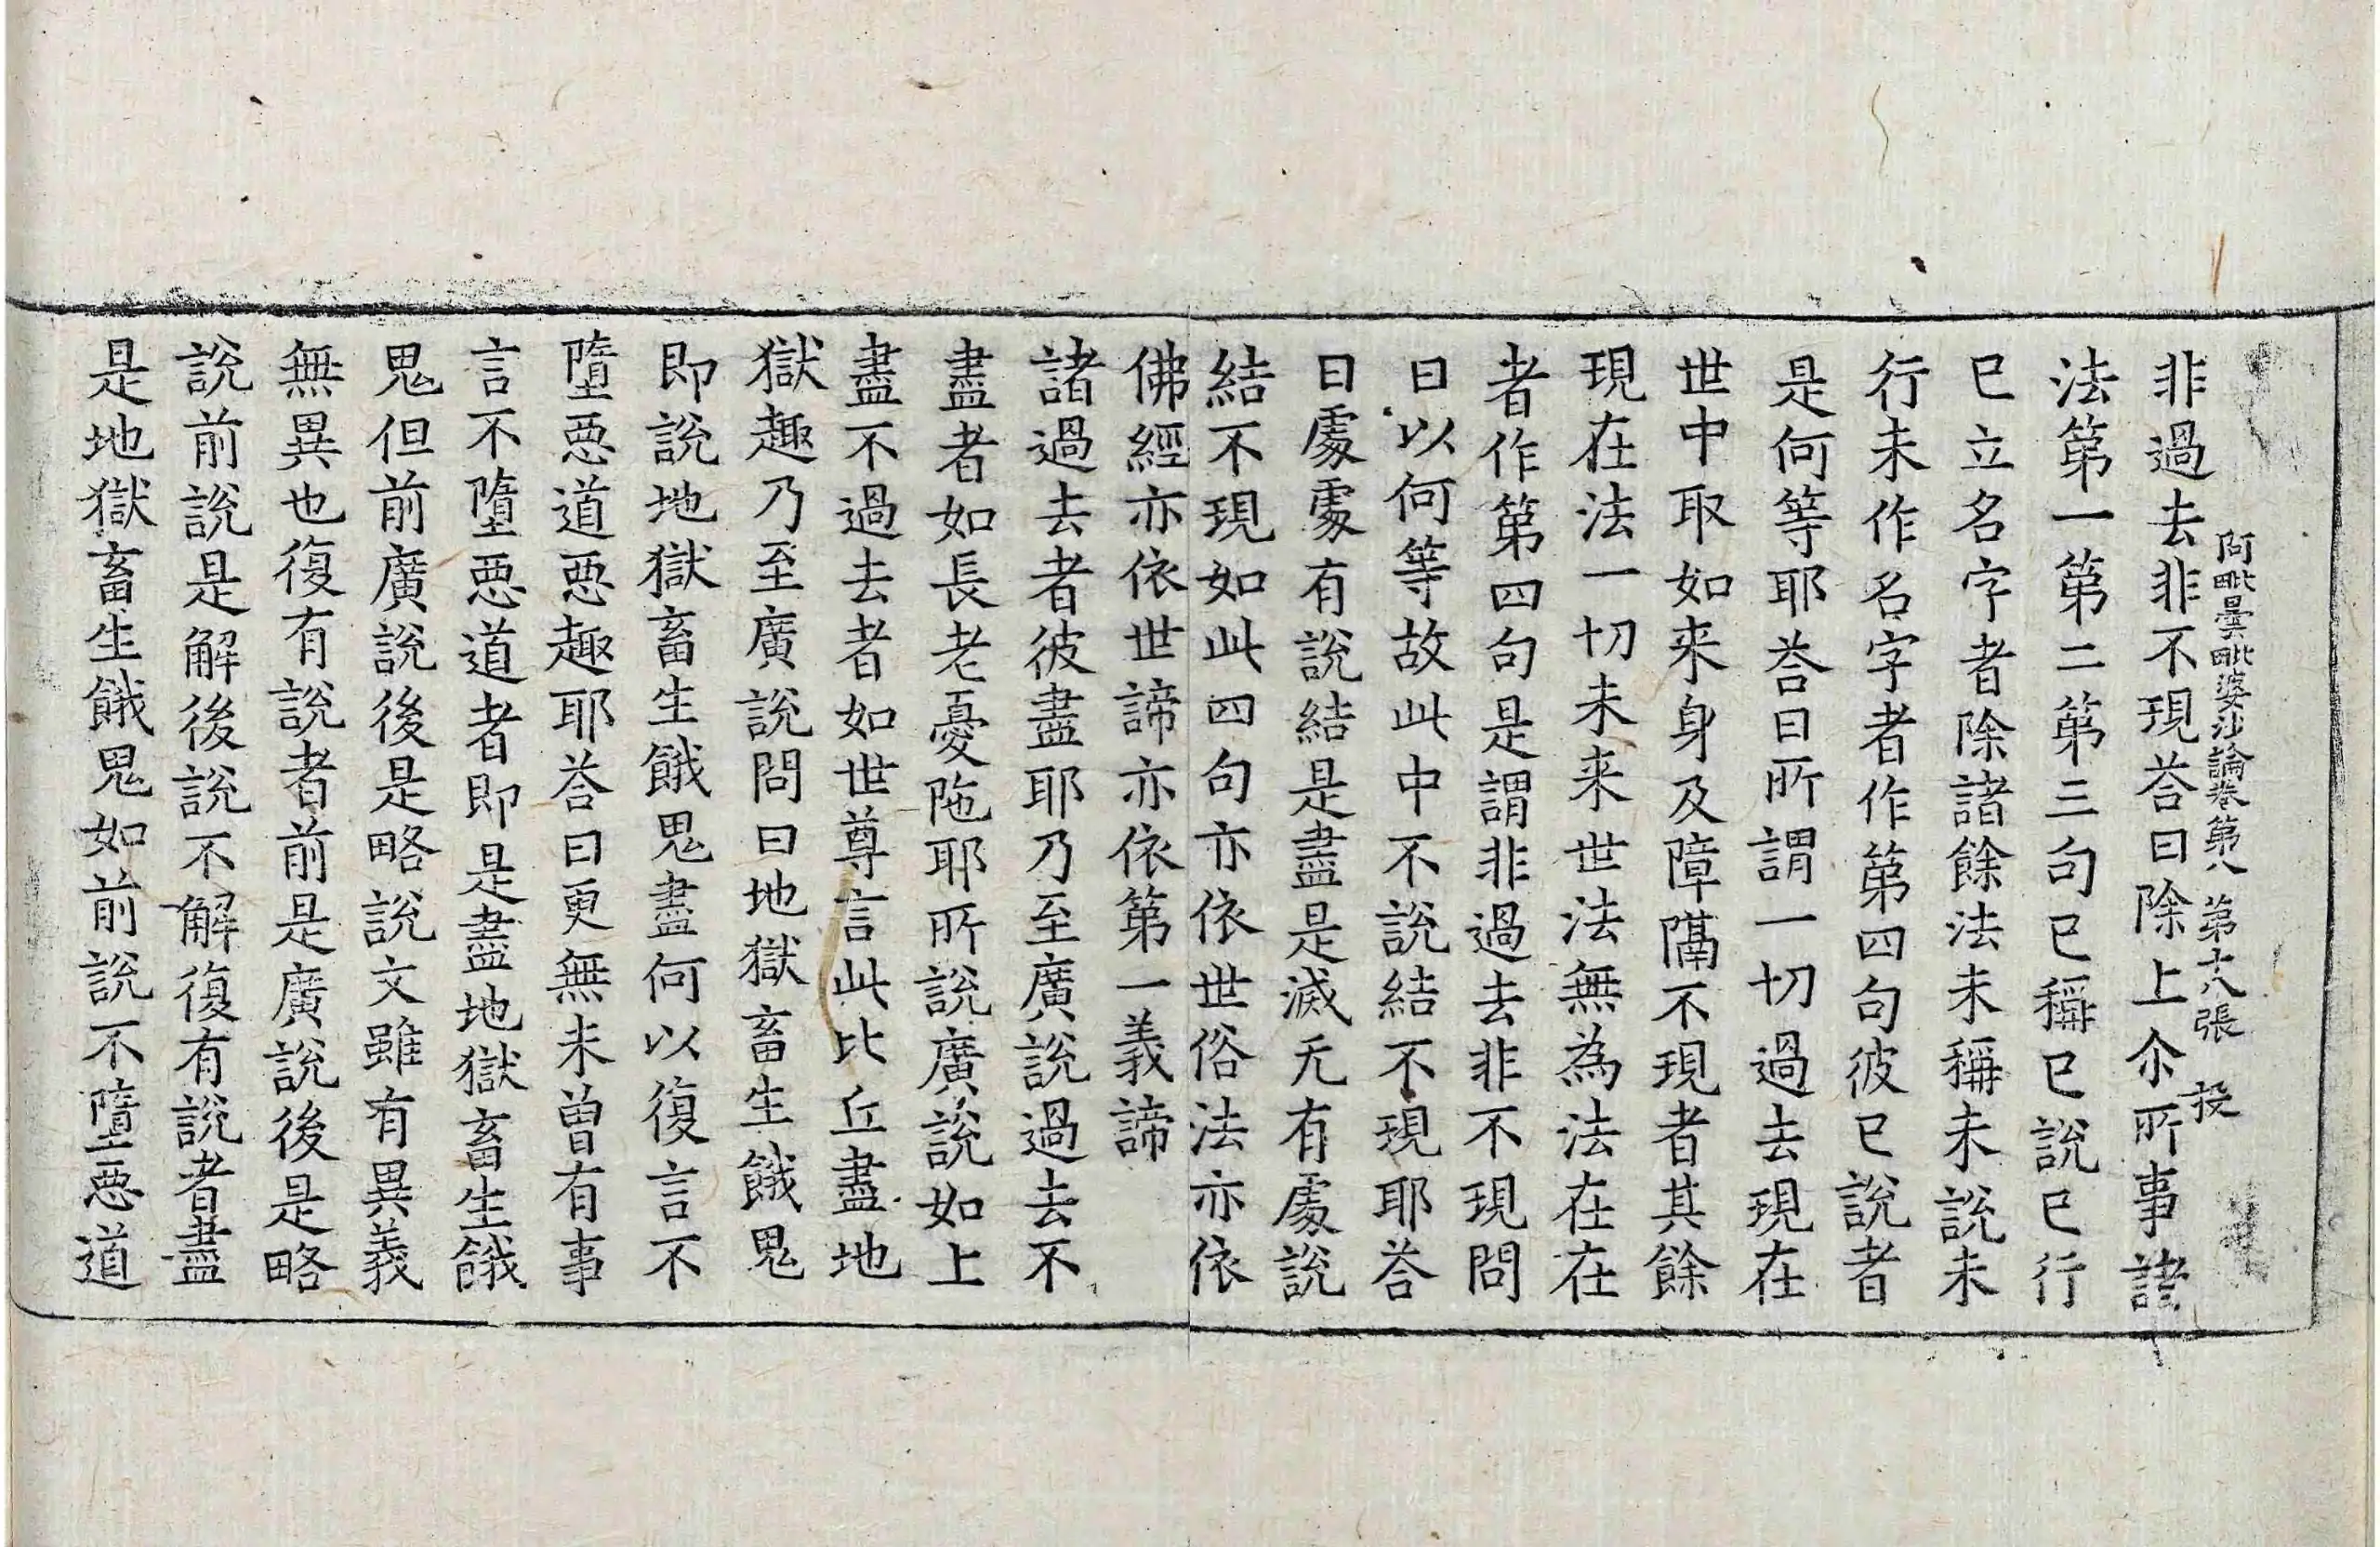 阿毗曇毗婆沙論卷第八　第十八張　投
非過去非不現荅曰除上尒所事諸
法第一第二第三句已稱已說已行
已立名字者除諸餘法未稱未說未
行未作名字者作第四句彼已說者
是何等耶荅曰所謂一切過去現在
世中取如来身及障隔不現者其餘
現在法一切未来世法無為法在在
者作第四句是謂非過去非不現問
曰以何等故此中不說結不現耶荅
曰處處有說結是盡是滅无有處說
結不現如此四句亦依世俗法亦依
佛經亦依世諦亦依第一義諦
諸過去者彼盡耶乃至廣說過去不
盡者如長老憂陁耶所說廣說如上
盡不過去者如世尊言此比丘盡地
獄趣乃至廣說問曰地獄畜生餓鬼
即說地獄畜生餓鬼盡何以復言不
墮惡道惡趣耶荅曰更無未曽有事
言不墮惡道者即是盡地獄畜生餓
鬼但前廣說後是略說文雖有異義
無異也復有說者前是廣說後是略
說前說是解後說不解復有說者盡
是地獄畜生餓鬼如前說不墮惡道